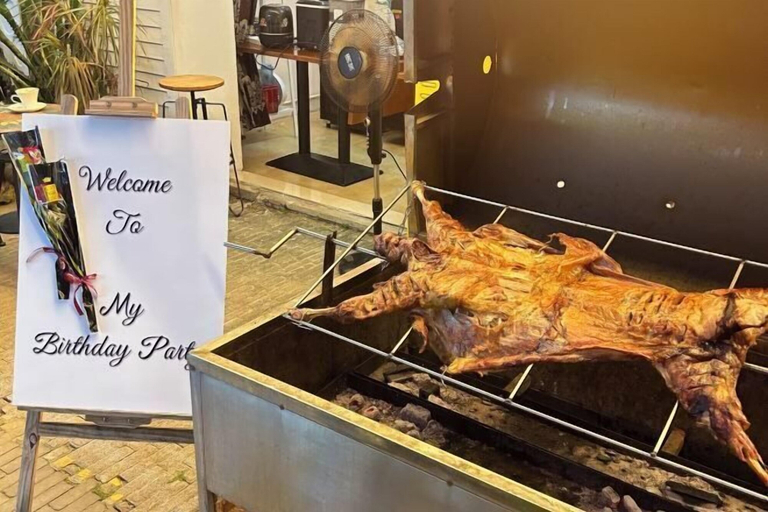 Welcome
To
My
Birthday Party